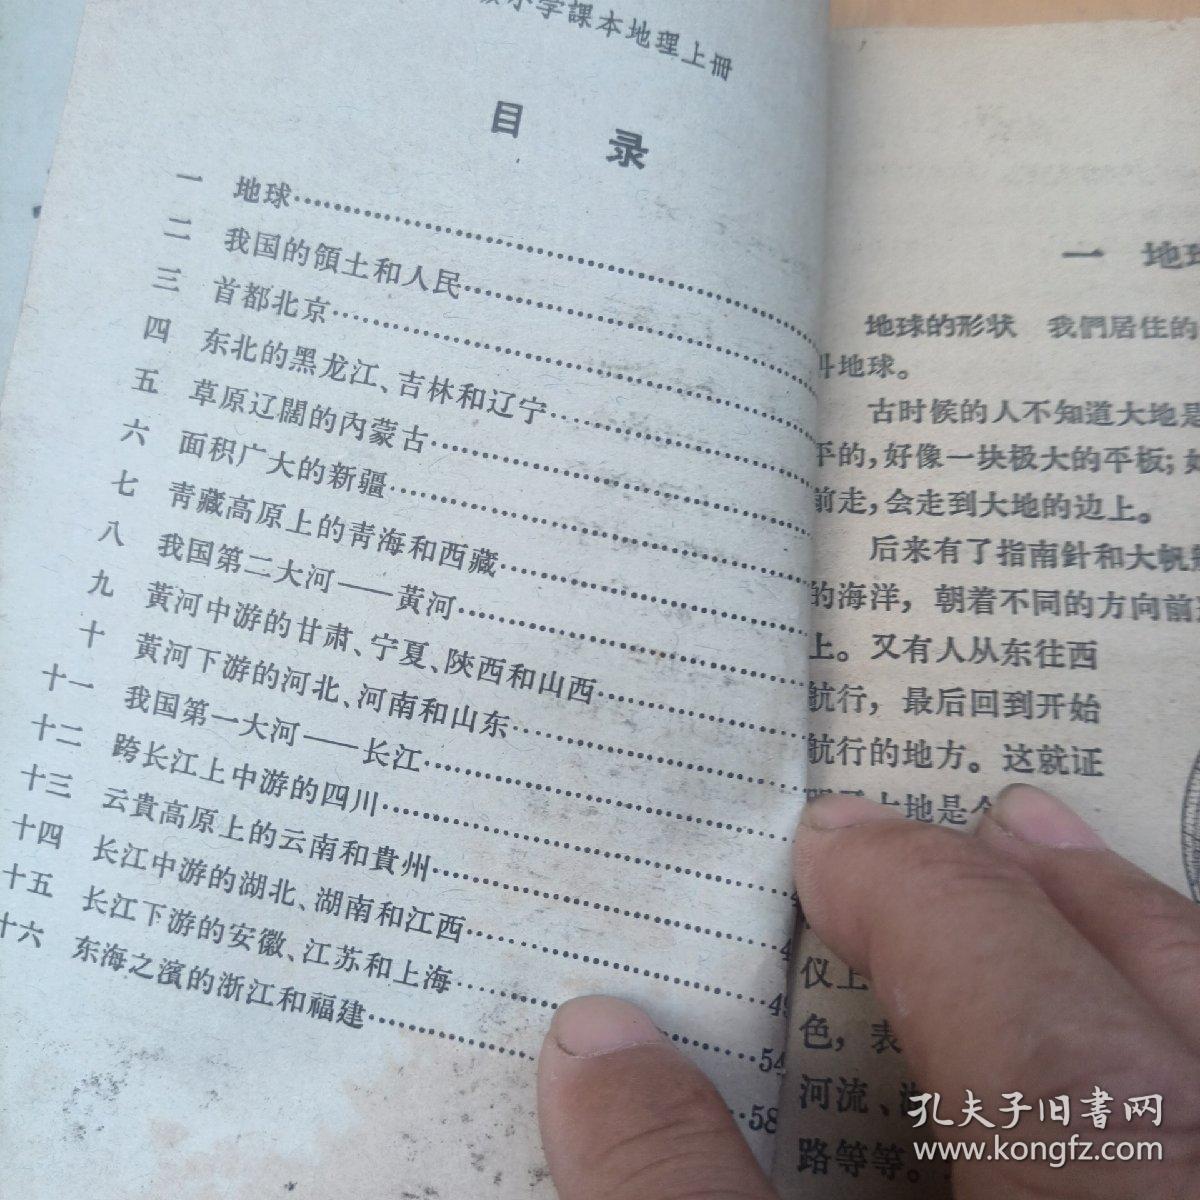 小学課本地理上冊
目 录
一 地球
二 我国的領土和人民
三 首都北京
四 东北的黑龙江、吉林和辽宁
五 草原辽闊的內蒙古
六 面积广大的新疆
七 青藏高原上的青海和西藏
八 我国第二大河——黃河
九 黃河中游的甘肃、宁夏、陝西和山西
十 黃河下游的河北、河南和山东
十一 我国第一大河——长江
十二 跨长江上中游的四川
十三 云貴高原上的云南和貴州
十四 长江中游的湖北、湖南和江西
十五 长江下游的安徽、江苏和上海 54
十六 东海之濱的浙江和福建 58
一 地球
地球的形状 我們居住的
地球。
古时候的人不知道大地是
平的，好像一块极大的平板；
前走，会走到大地的边上。
后来有了指南針和大帆
的海洋，朝着不同的方向前
上。又有人从东往西
航行，最后回到开始
航行的地方。这就证
大地是个
仪上
色，表
河流、
路等等。
孔夫子旧書网
www.kongfz.com